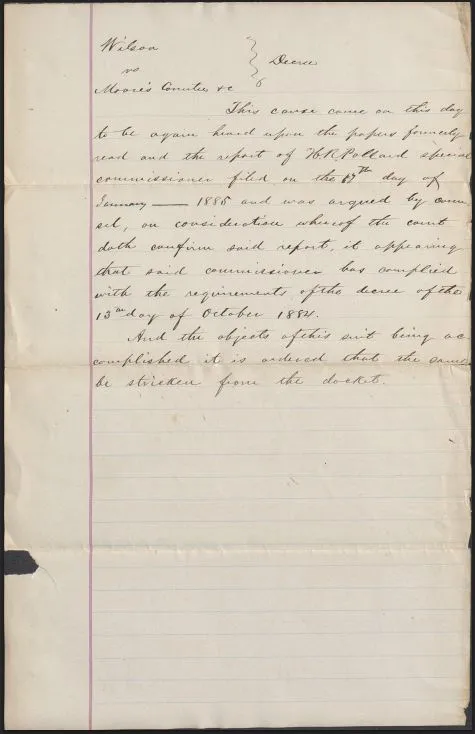 Wilson
vs } Decree
Moore's Comttee &c
This cause came on this day
to be again heard upon the papers formerly
read and the report of H R Pollard special
commissioner filed on the 17th day of
January — 1885 and was argued by coun
sel, on consideration whereof the court
doth confirm said report, it appearing
that said commissioner has complied
with the requirements of the decree of the
13th day of October 1884.
And the objects of this suit being ac
complished it is ordered that the same
be stricken from the docket.